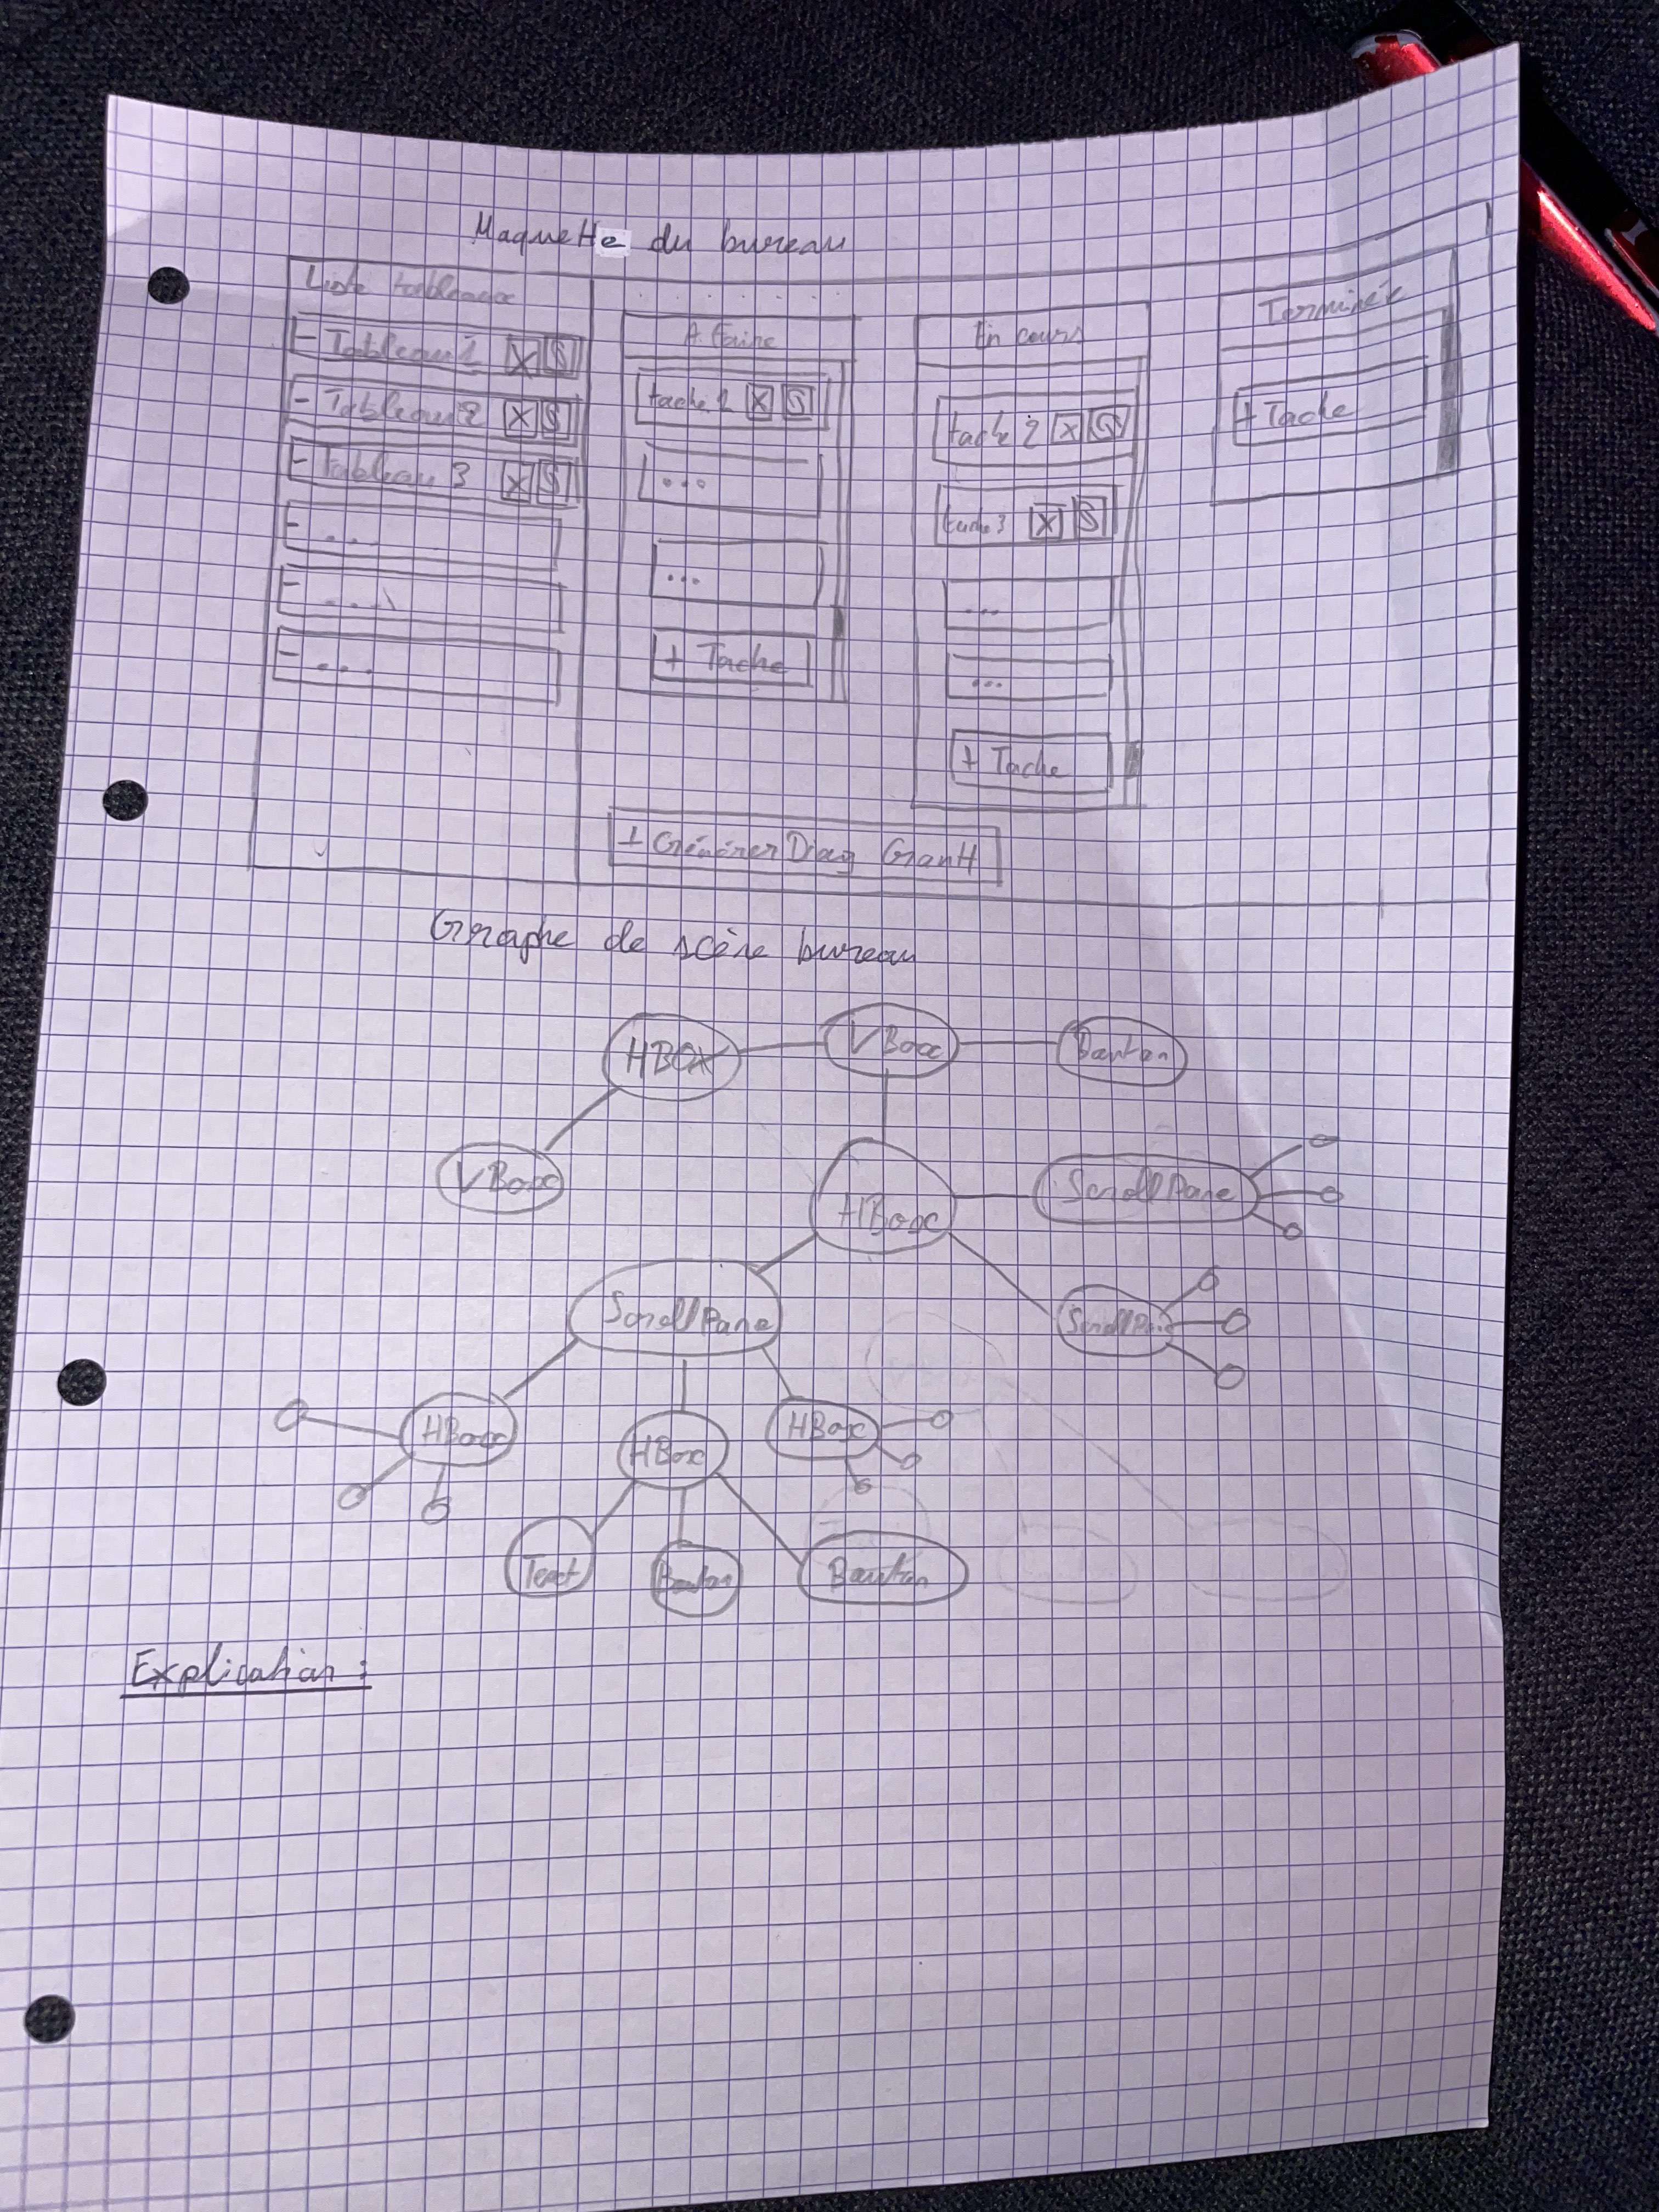 Maquette du bureau
Liste tableaux
- Tableau 1 X S
- Tableau 2 X S
- Tableau 3 X S
- ...
- ...
- ...
A Faire
tache 1 X S
...
...
+ Tache
En cours
tache 2 X S
tache 3 X S
...
...
+ Tache
Terminée
+ Tache
+ Générer Diag Grantt
Graphe de scène bureau
HBOX VBox Bouton
VBox HBox ScrollPane
ScrollPane ScrollPane
HBox HBox HBox
Text Bouton Bouton
Explication :